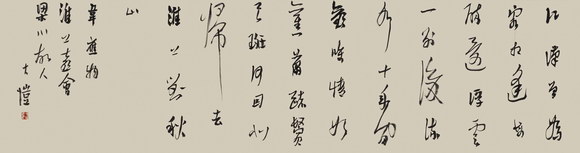 江漢曾為
客相逢每
醉還浮雲
一別後流
水十年間
歡笑情如
舊蕭疏鬢
已斑何因北
歸去
淮上對秋
山
韋應物
淮上喜會
梁川故人